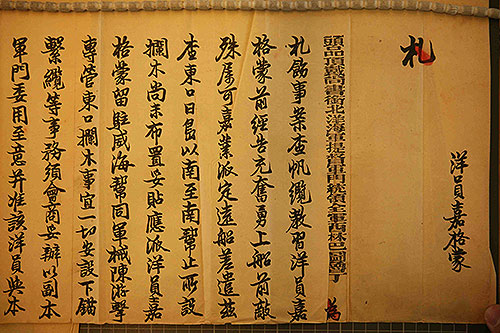 札
洋員嘉格蒙
頭品頂戴尚書銜北洋海軍提督軍門統領全軍西林巴圖魯丁 為
札飭事案查帆纜教習洋員嘉
格蒙前經告充奮勇上船前敵
殊屬可嘉業派定遠船差遣茲
查東口日島以南至南幫止所設
攔木尚未布置妥貼應派洋員嘉
格蒙留駐威海幫同軍械陳游擊
專管東口攔木事宜一切安設下錨
繫纜等事務須會商妥辦以副本
軍門委用至意并准該洋員與本